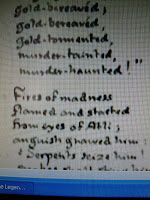 gold-bereaved,
gold-bereaved,
gold-tormented,
murder-tainted,
murder-haunted!"
Fires of madness
flamed and started
from eyes of Atli;
anguish gnawed him:
'Serpents seize him!
e Legen...